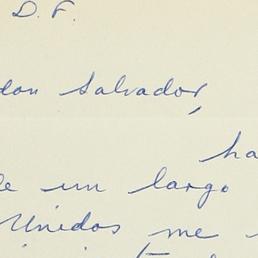 D. F.
don Salvador,
ha
de un largo
Unidos me